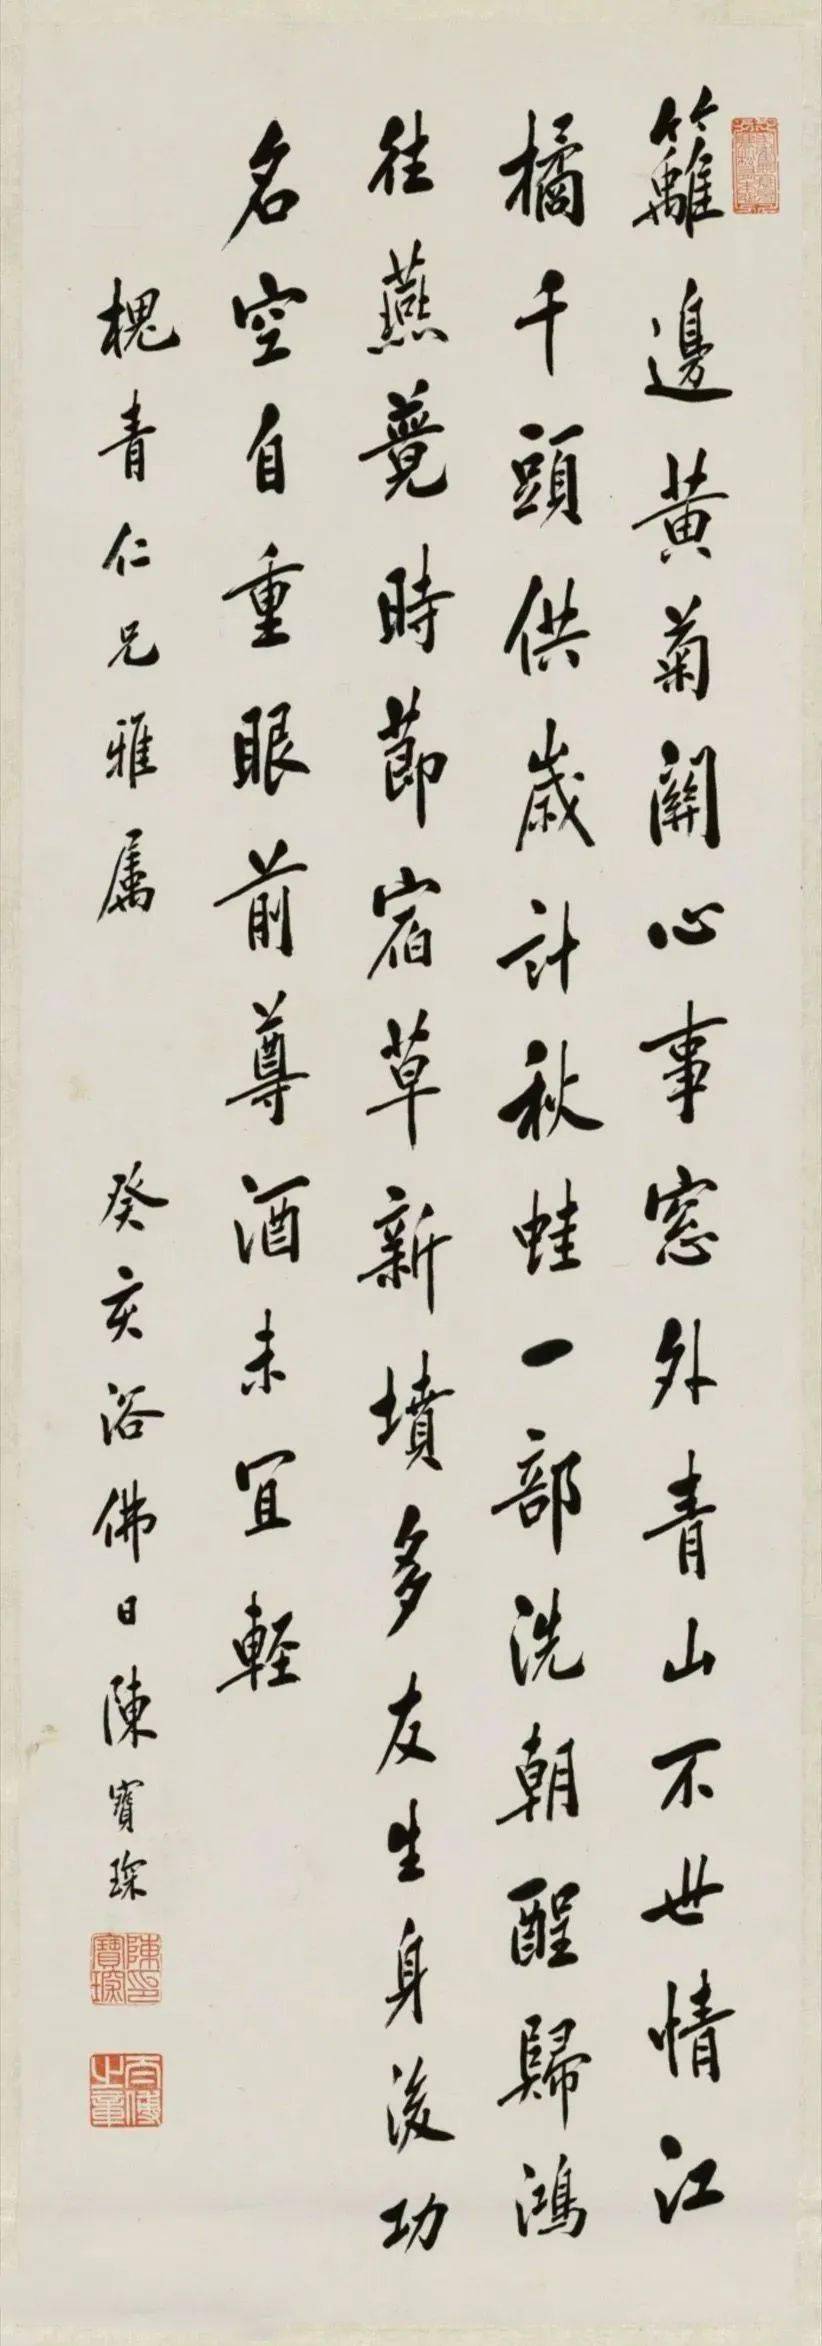 籬邊黃菊關心事窓外青山不世情江
橘千頭供歲計秋蛙一部洗朝酲歸鴻
往燕競時節宿草新墳多友生身後功
名空自重眼前尊酒未宜輕
槐青仁兄雅屬
癸亥浴佛日陳寶琛
陳印寶琛
太傅之章